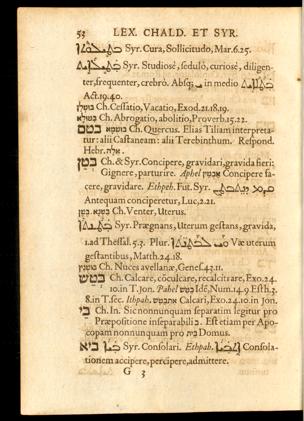 53 LEX. CHALD. ET SYR.
Syr. Cura, Sollicitudo, Mar.6.25.
Syr. Studiosè, sedulò, curiosè, diligen-
ter, frequenter, crebrò. Absq; in medio
Act.19.40.
בוטלן Ch. Cessatio, Vacatio, Exod.21.18.19.
Ch. Abrogatio, abolitio, Proverb.15.22.
בטם Ch. Quercus. Elias Tiliam interpreta-
tur: alii Castaneam: alii Terebinthum. Respond.
Hebr. אלה.
בטן Ch. & Syr. Concipere, gravidari, gravida fieri;
Gignere, parturire. Aphel Concipere fa-
cere, gravidare. Ethpeh. Fut. Syr.
Antequam conciperetur, Luc.2.21.
בטן Ch: Venter, Uterus.
Syr. Prægnans, Uterum gestans, gravida,
1.ad Thessal.5.3. Plur. Væ uterum
gestantibus, Matth.24.18.
Ch. Nuces avellanæ, Genes.43.11.
בטש Ch. Calcare, cōculcare, recalcitrare, Exo.24.
10.in T. Jon. Pahel Idē, Num.14.9. Esth.3.
8.in T. sec. Ithpah. Calcari, Exo.24.10. in Jon.
בי Ch. In. Sic nonnunquam separatim legitur pro
Præpositione inseparabili ב. Est etiam per Apo-
copam nonnunquam pro בית Domus.
ביא Syr. Consolari. Ethpah. Consola-
tionem accipere, percipere, admittere.
G 3